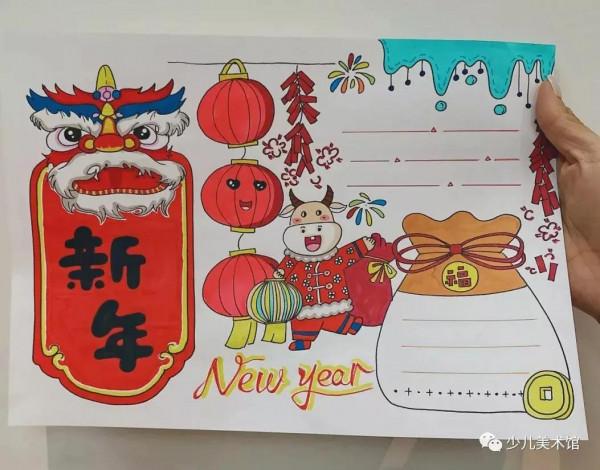 新
年
福
New year
少儿美术馆